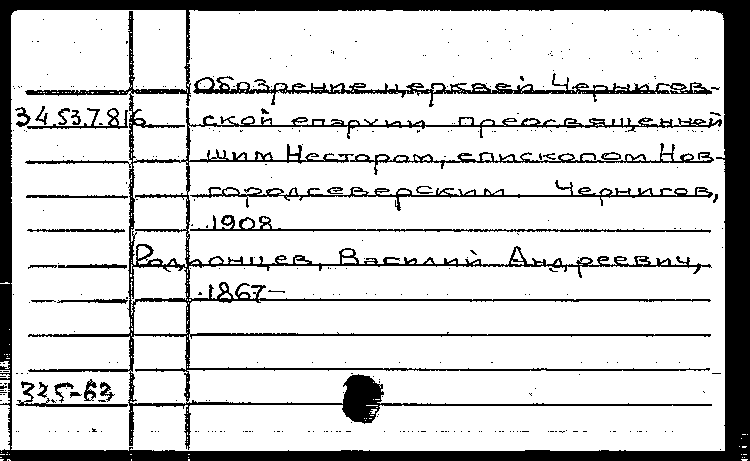 Обозрение церквей Чернигов-
34.53.7.8/6 ской епархии преосвященней
шим Нестором, епископом Нов-
городсеверским. Чернигов,
1908.
Родионцев, Василий Андреевич,
1867-
335-63